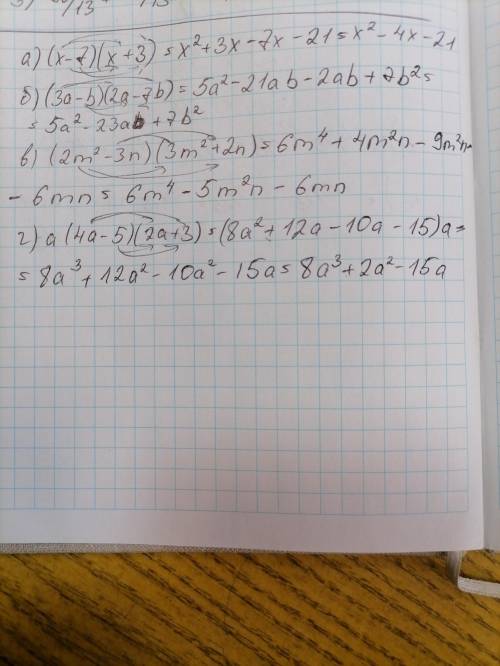 а) (x-7)(x+3) = x²+3x-7x-21 = x²-4x-21
б) (3a-b)(2a-7b) = 5a²-21ab-2ab+7b² =
= 5a²-23ab+7b²
в) (2m²-3n)(3m²+2n) = 6m⁴+4m²n-9m²n-
-6mn = 6m⁴-5m²n-6mn
г) a(4a-5)(2a+3) = (8a²+12a-10a-15)a =
= 8a³+12a²-10a²-15a = 8a³+2a²-15a